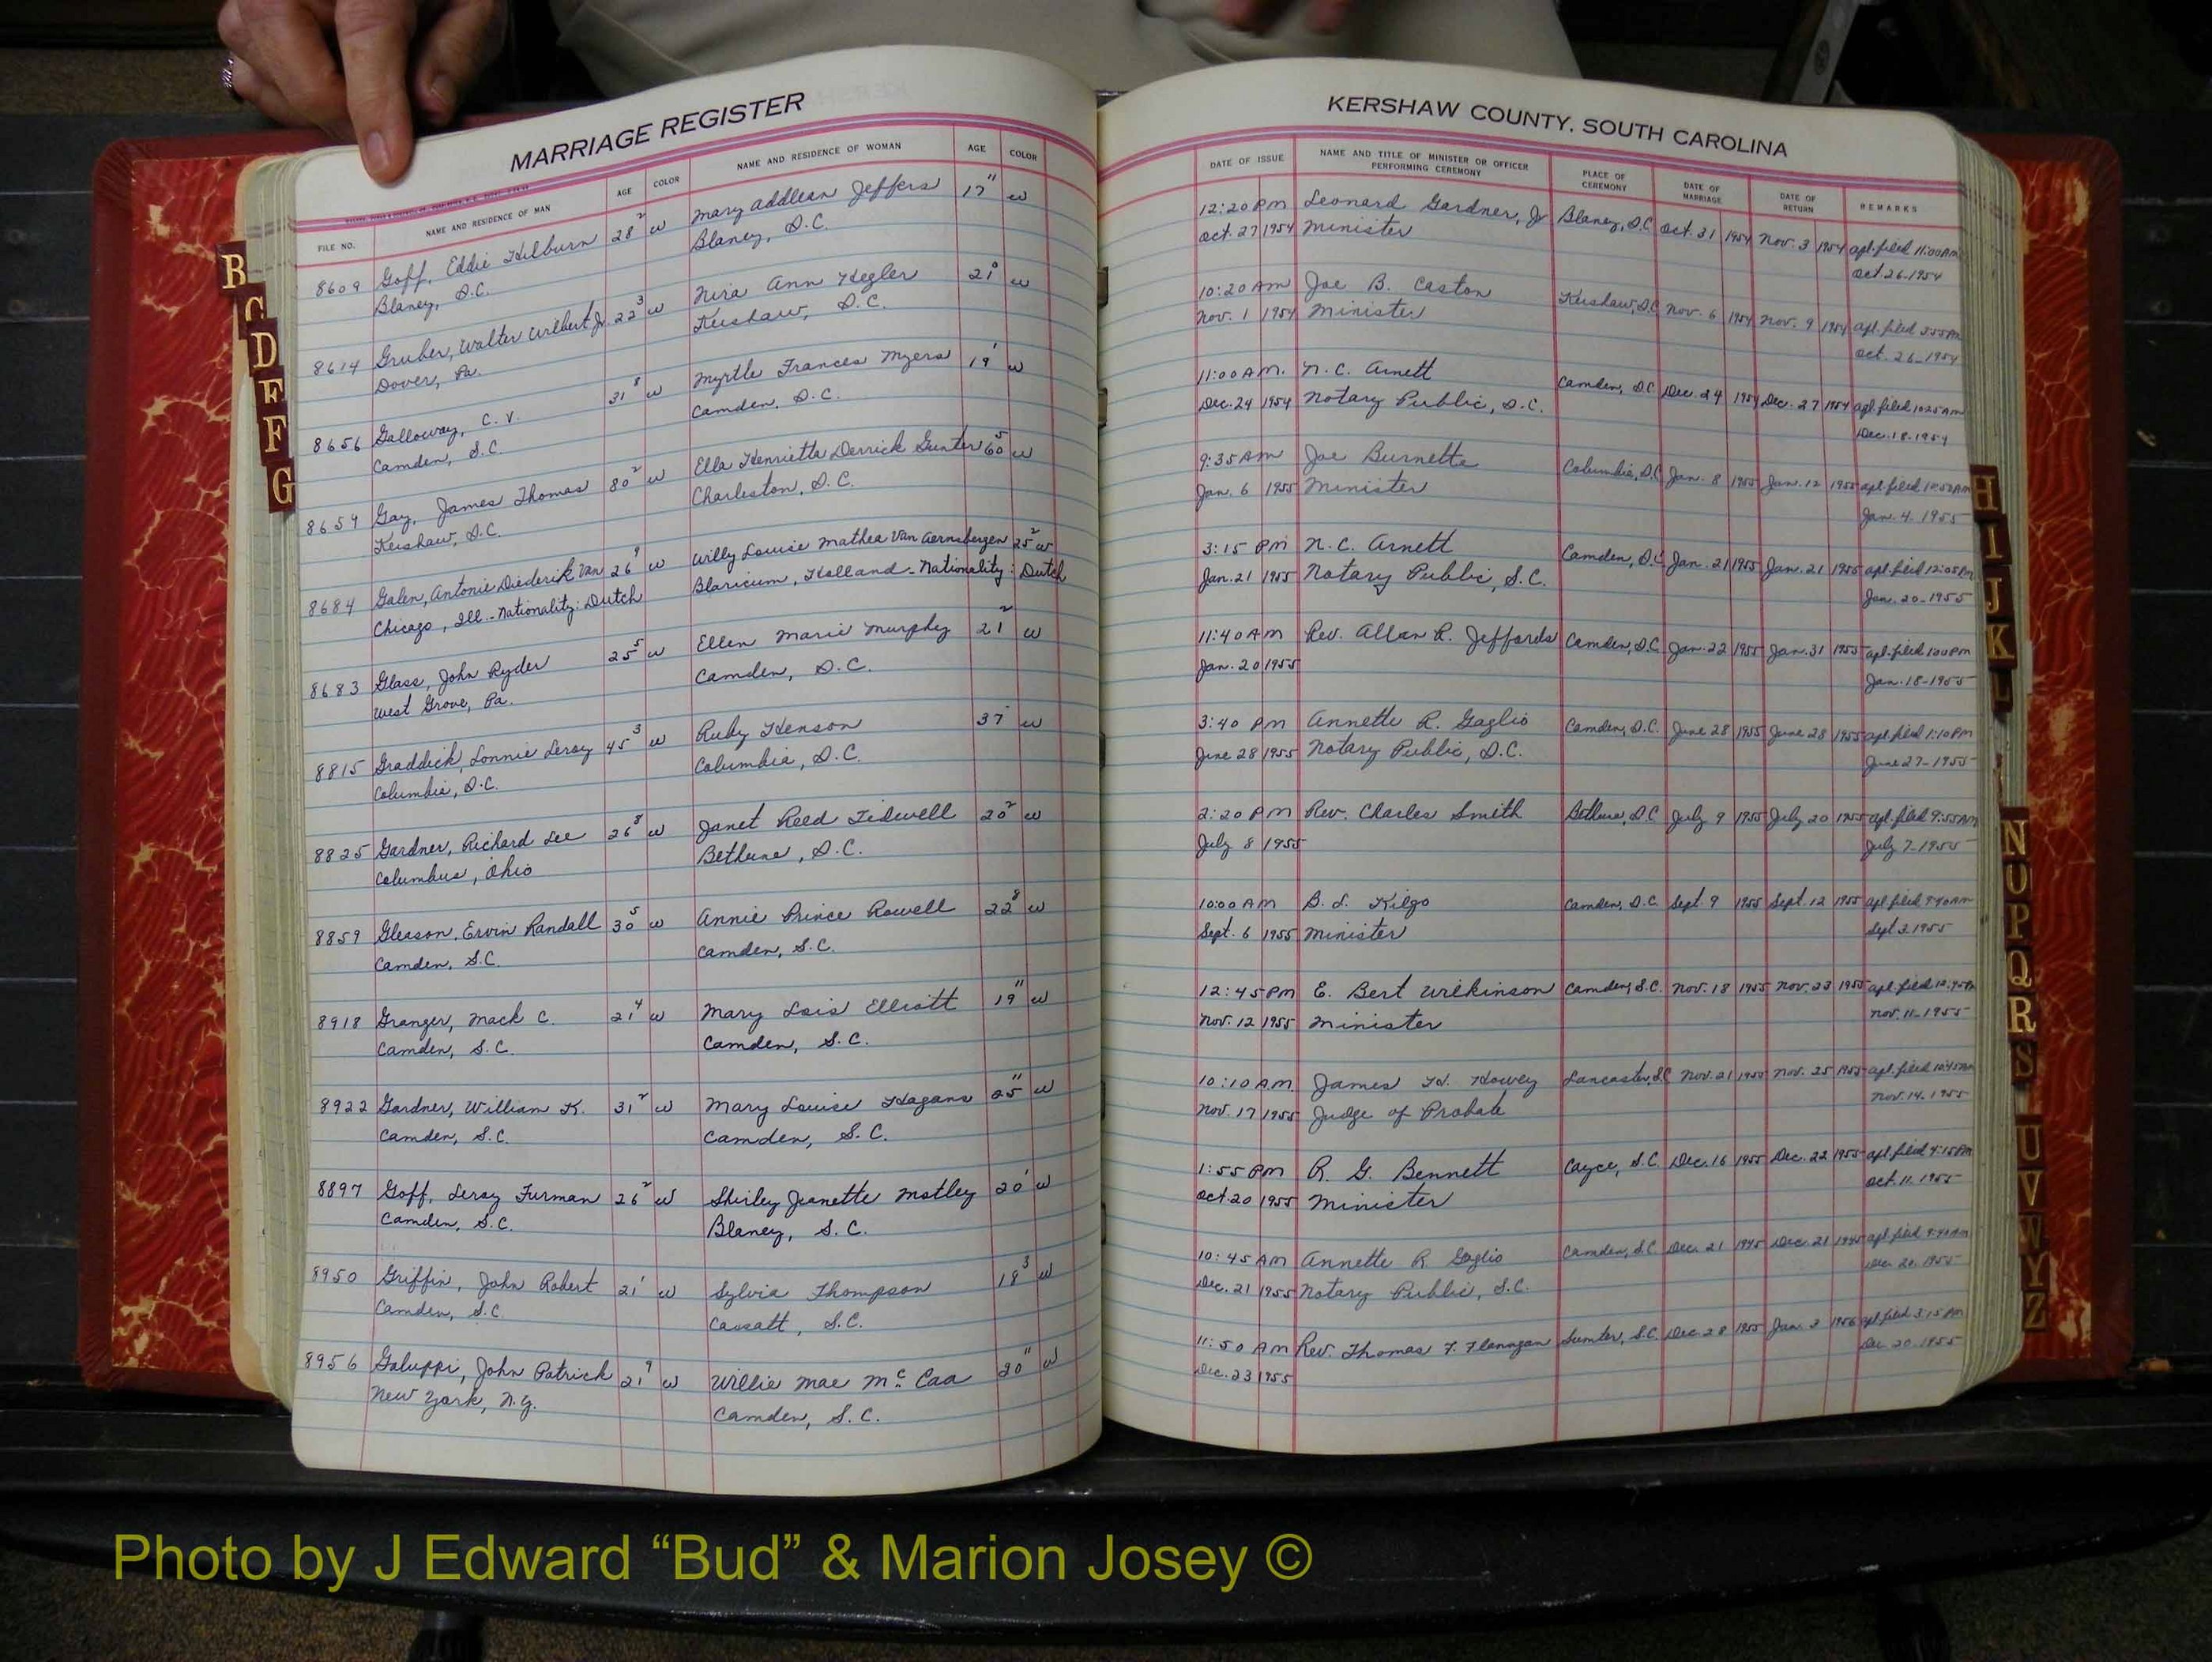 MARRIAGE REGISTER
FILE NO. NAME AND RESIDENCE OF MAN AGE COLOR NAME AND RESIDENCE OF WOMAN AGE COLOR
8609 Goff, Eddie Hilburn 28 2 w Mary Addlean Jeffers 17 11 w
Blaney, S.C. Blaney, S.C.
8614 Gruber, Walter Wilbert Jr. 22 3 w Nira Ann Hegler 21 0 w
Dover, Pa. Kershaw, S.C.
8656 Galloway, C. V. 31 8 w Myrtle Frances Myers 19 1 w
Camden, S.C. Camden, S.C.
8659 Gay, James Thomas 80 2 w Ella Henrietta Derrick Gunter 60 5 w
Kershaw, S.C. Charleston, S.C.
8684 Galen, Antonie Diederik Van 26 9 w Willy Louise Mathea Van Aernsbergen 25 2 w
Chicago, Ill. - Nationality: Dutch Blaricum, Holland - Nationality: Dutch
8683 Glass, John Ryder 25 5 w Ellen Marie Murphy 21 2 w
West Grove, Pa. Camden, S.C.
8815 Graddick, Lonnie Leroy 45 3 w Ruby Henson 37 w
Columbia, S.C. Columbia, S.C.
8825 Gardner, Richard Lee 26 8 w Janet Reed Tidwell 20 2 w
Columbus, Ohio Bethune, S.C.
8859 Gleason, Ervin Randall 30 5 w Annie Prince Rowell 22 8 w
Camden, S.C. Camden, S.C.
8918 Granger, Mack C. 21 4 w Mary Lois Elliott 19 11 w
Camden, S.C. Camden, S.C.
8922 Gardner, William K. 31 2 w Mary Louise Hagans 25 11 w
Camden, S.C. Camden, S.C.
8897 Goff, Leroy Furman 26 2 w Shirley Jeanette Motley 20 1 w
Camden, S.C. Blaney, S.C.
8950 Griffin, John Robert 21 1 w Sylvia Thompson 18 3 w
Camden, S.C. Cassatt, S.C.
8956 Galuppi, John Patrick 21 9 w Willie Mae McCaa 20 11 w
New York, N.Y. Camden, S.C.
KERSHAW COUNTY, SOUTH CAROLINA
DATE OF ISSUE NAME AND TITLE OF MINISTER OR OFFICER PERFORMING CEREMONY PLACE OF CEREMONY DATE OF MARRIAGE DATE OF RETURN REMARKS
12:20 PM Leonard Gardner, Jr Blaney, S.C. Oct. 31 1954 Nov. 3 1954 apl. filed 11:00 AM
Oct. 27 1954 Minister Oct. 26-1954
10:20 AM Joe B. Caston Kershaw, S.C. Nov. 6 1954 Nov. 9 1954 apl. filed 3:55 PM
Nov. 1 1954 Minister Oct. 26-1954
11:00 A.M. N. C. Arnett Camden, S.C. Dec. 24 1954 Dec. 27 1954 apl. filed 10:25 AM
Dec. 24 1954 Notary Public, S.C. Dec. 18-1954
9:35 AM Joe Burnette Columbia, S.C. Jan. 8 1955 Jan. 12 1955 apl. filed 10:50 AM
Jan. 6 1955 Minister Jan. 4-1955
3:15 PM N. C. Arnett Camden, S.C. Jan. 21 1955 Jan. 21 1955 apl. filed 12:05 PM
Jan. 21 1955 Notary Public, S.C. Jan. 20-1955
11:40 AM Rev. Allan R. Jeffords Camden, S.C. Jan. 22 1955 Jan. 31 1955 apl. filed 1:00 PM
Jan. 20 1955 Jan. 18-1955
3:40 PM Annette R. Gaglio Camden, S.C. June 28 1955 June 28 1955 apl. filed 1:10 PM
June 28 1955 Notary Public, S.C. June 27-1955
2:20 PM Rev. Charles Smith Bethune, S.C. July 9 1955 July 20 1955 apl. filed 9:55 AM
July 8 1955 July 7-1955
10:00 AM B. L. Kilgo Camden, S.C. Sept. 9 1955 Sept. 12 1955 apl. filed 9:40 AM
Sept. 6 1955 Minister Sept. 3-1955
12:45 PM E. Bert Wilkinson Camden, S.C. Nov. 18 1955 Nov. 23 1955 apl. filed
Nov. 12 1955 Minister Nov. 11-1955
10:10 A.M. James H. Howey Lancaster, S.C. Nov. 21 1955 Nov. 25 1955 apl. filed 10:45 AM
Nov. 17 1955 Judge of Probate Nov. 14-1955
1:55 PM R. G. Bennett Cayce, S.C. Dec. 16 1955 Dec. 22 1955 apl. filed 4:15 PM
Oct. 20 1955 Minister Oct. 11-1955
10:45 AM Annette R. Gaglio Camden, S.C. Dec. 21 1945 Dec. 21 1945 apl. filed 9:40 AM
Dec. 21 1955 Notary Public, S.C. Dec. 20-1955
11:50 AM Rev. Thomas F. Flanagan Sumter, S.C. Dec. 28 1955 Jan. 3 1956 apl. filed 3:15 PM
Dec. 23 1955 Dec. 20-1955
B
C
D
E
F
G
H
I
J
K
L
N
O
P
Q
R
S
U
V
W
Y
Z
Photo by J Edward “Bud” & Marion Josey ©